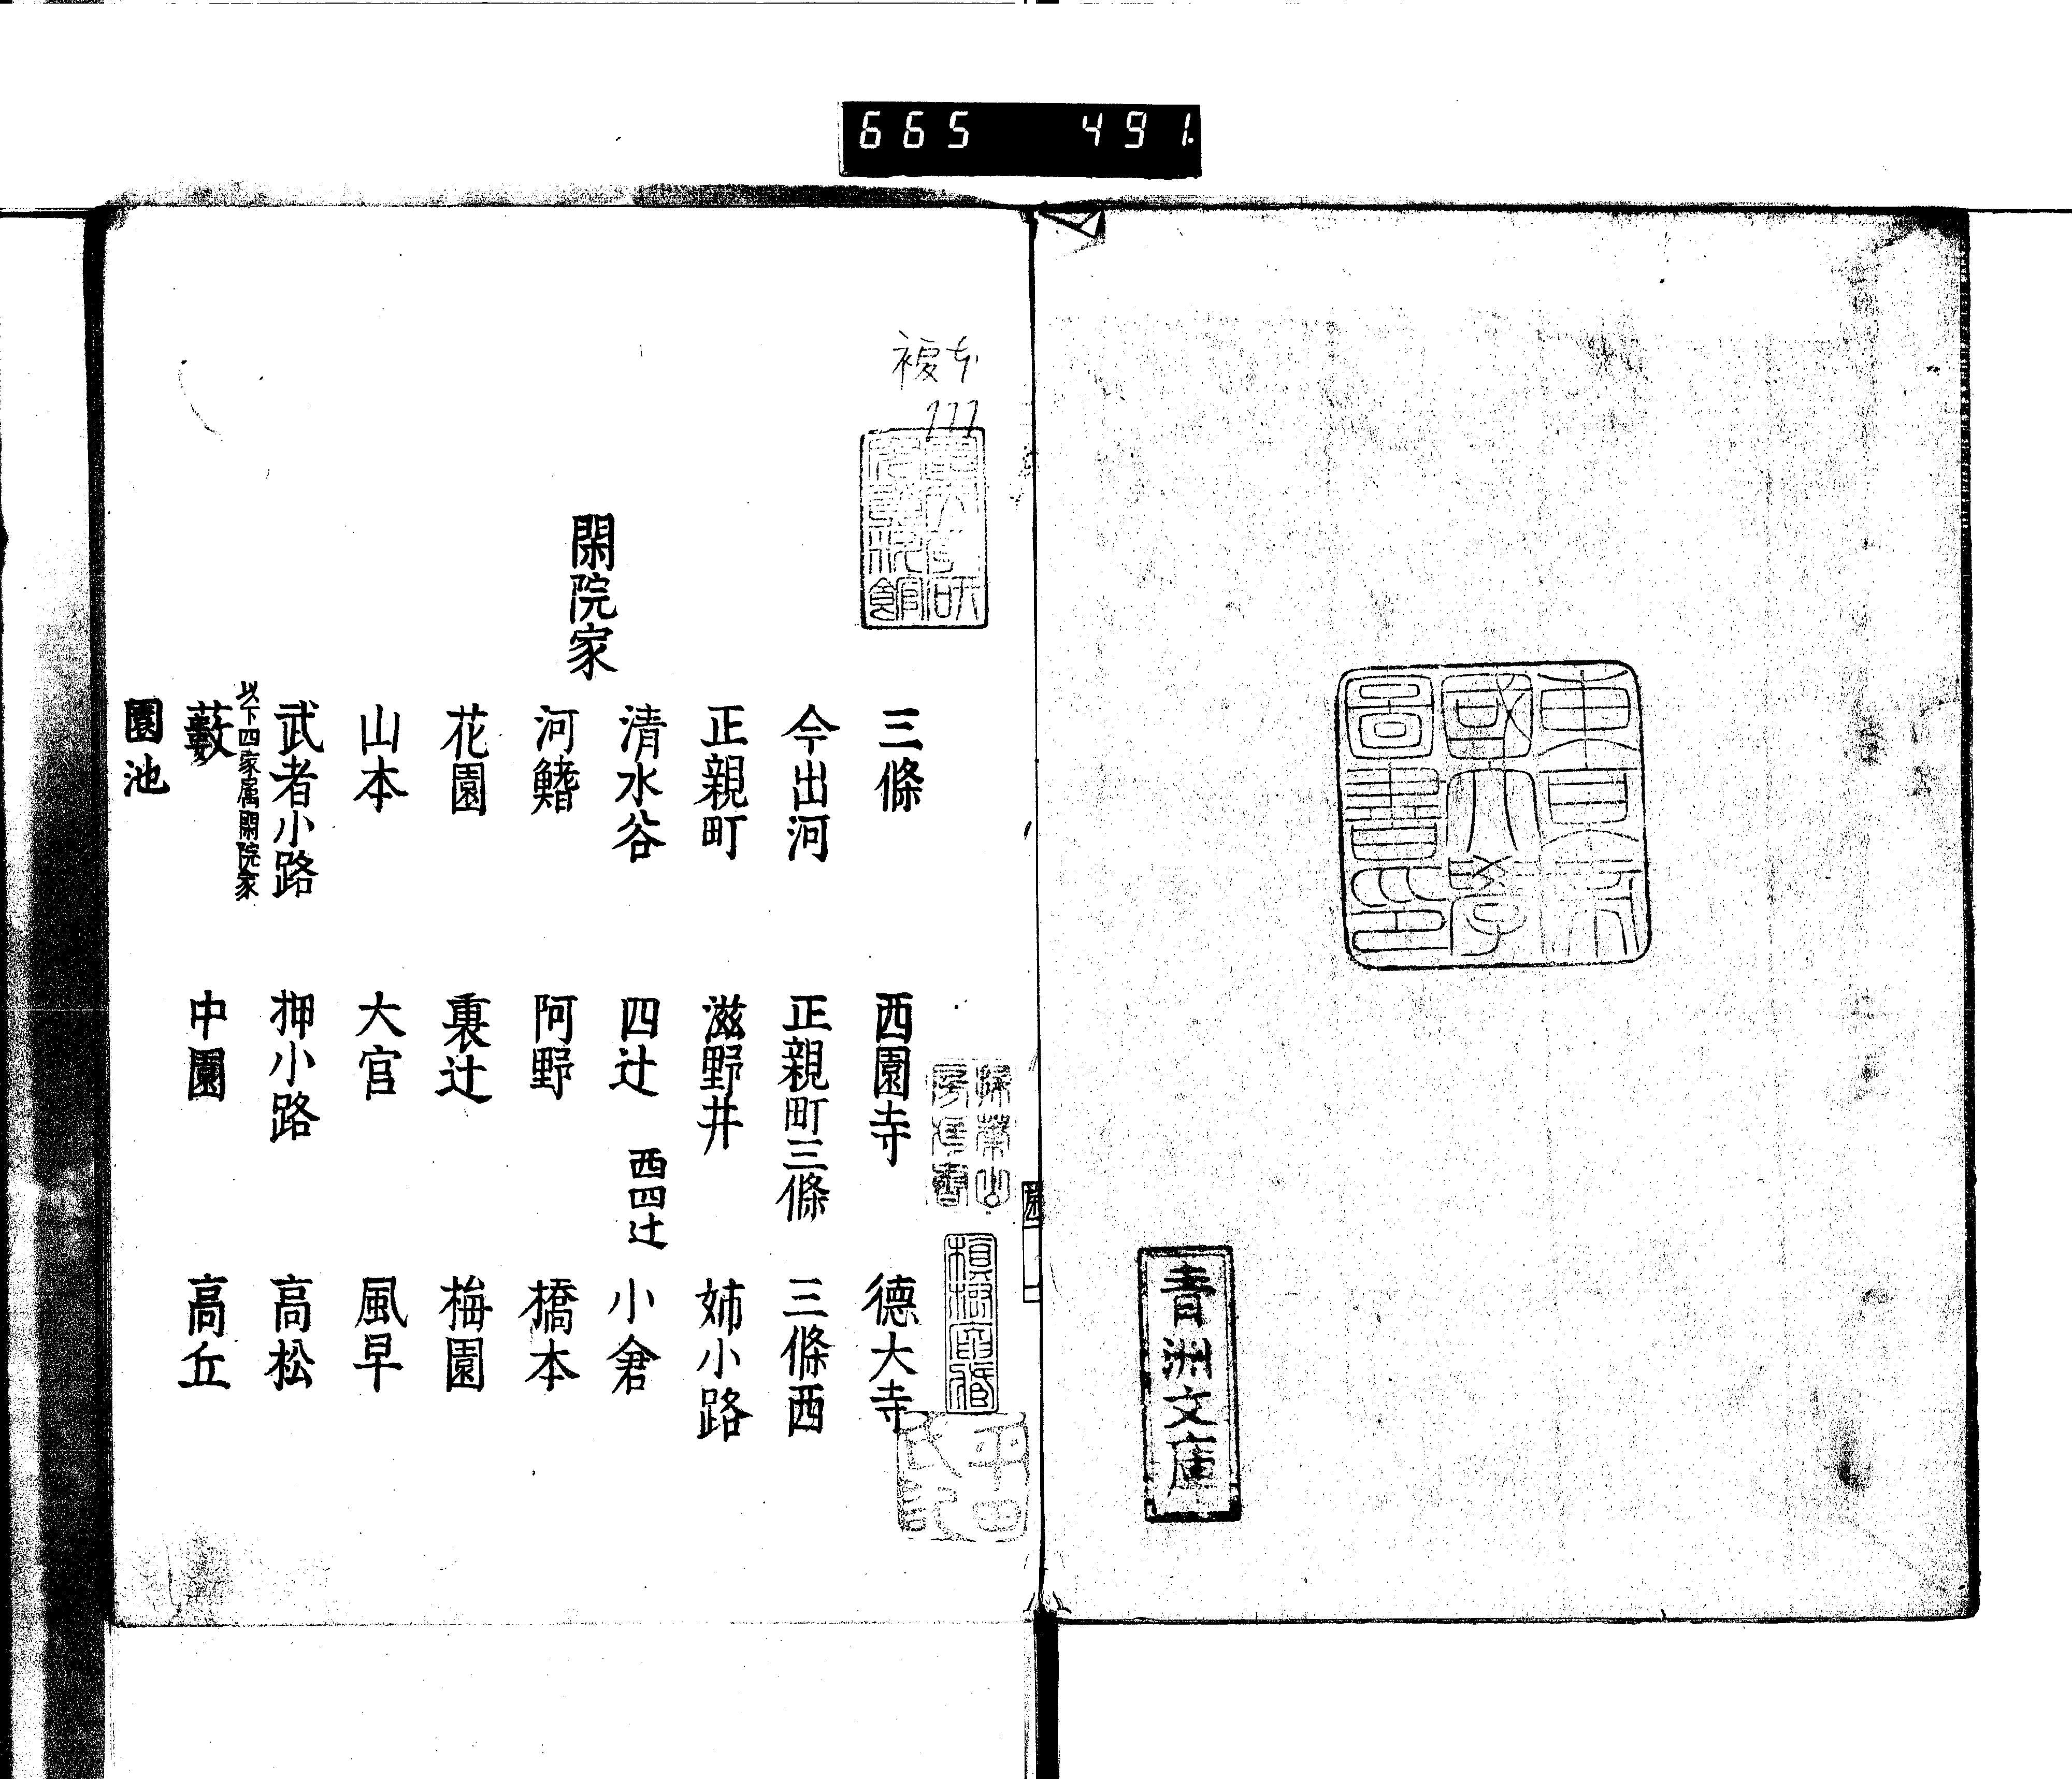 665 491
東京帝國大學圖書印
青洲文庫
複本
平田氏記
閑院家
三條 西園寺 德大寺
今出河 正親町三條 三條西
正親町 滋野井 姉小路
清水谷 四辻 西四辻 小倉
河鰭 阿野 橋本
花園 裏辻 梅園
山本 大宮 風早
武者小路 押小路 高松
以下四家属閑院家
藪 中園 高丘
園池